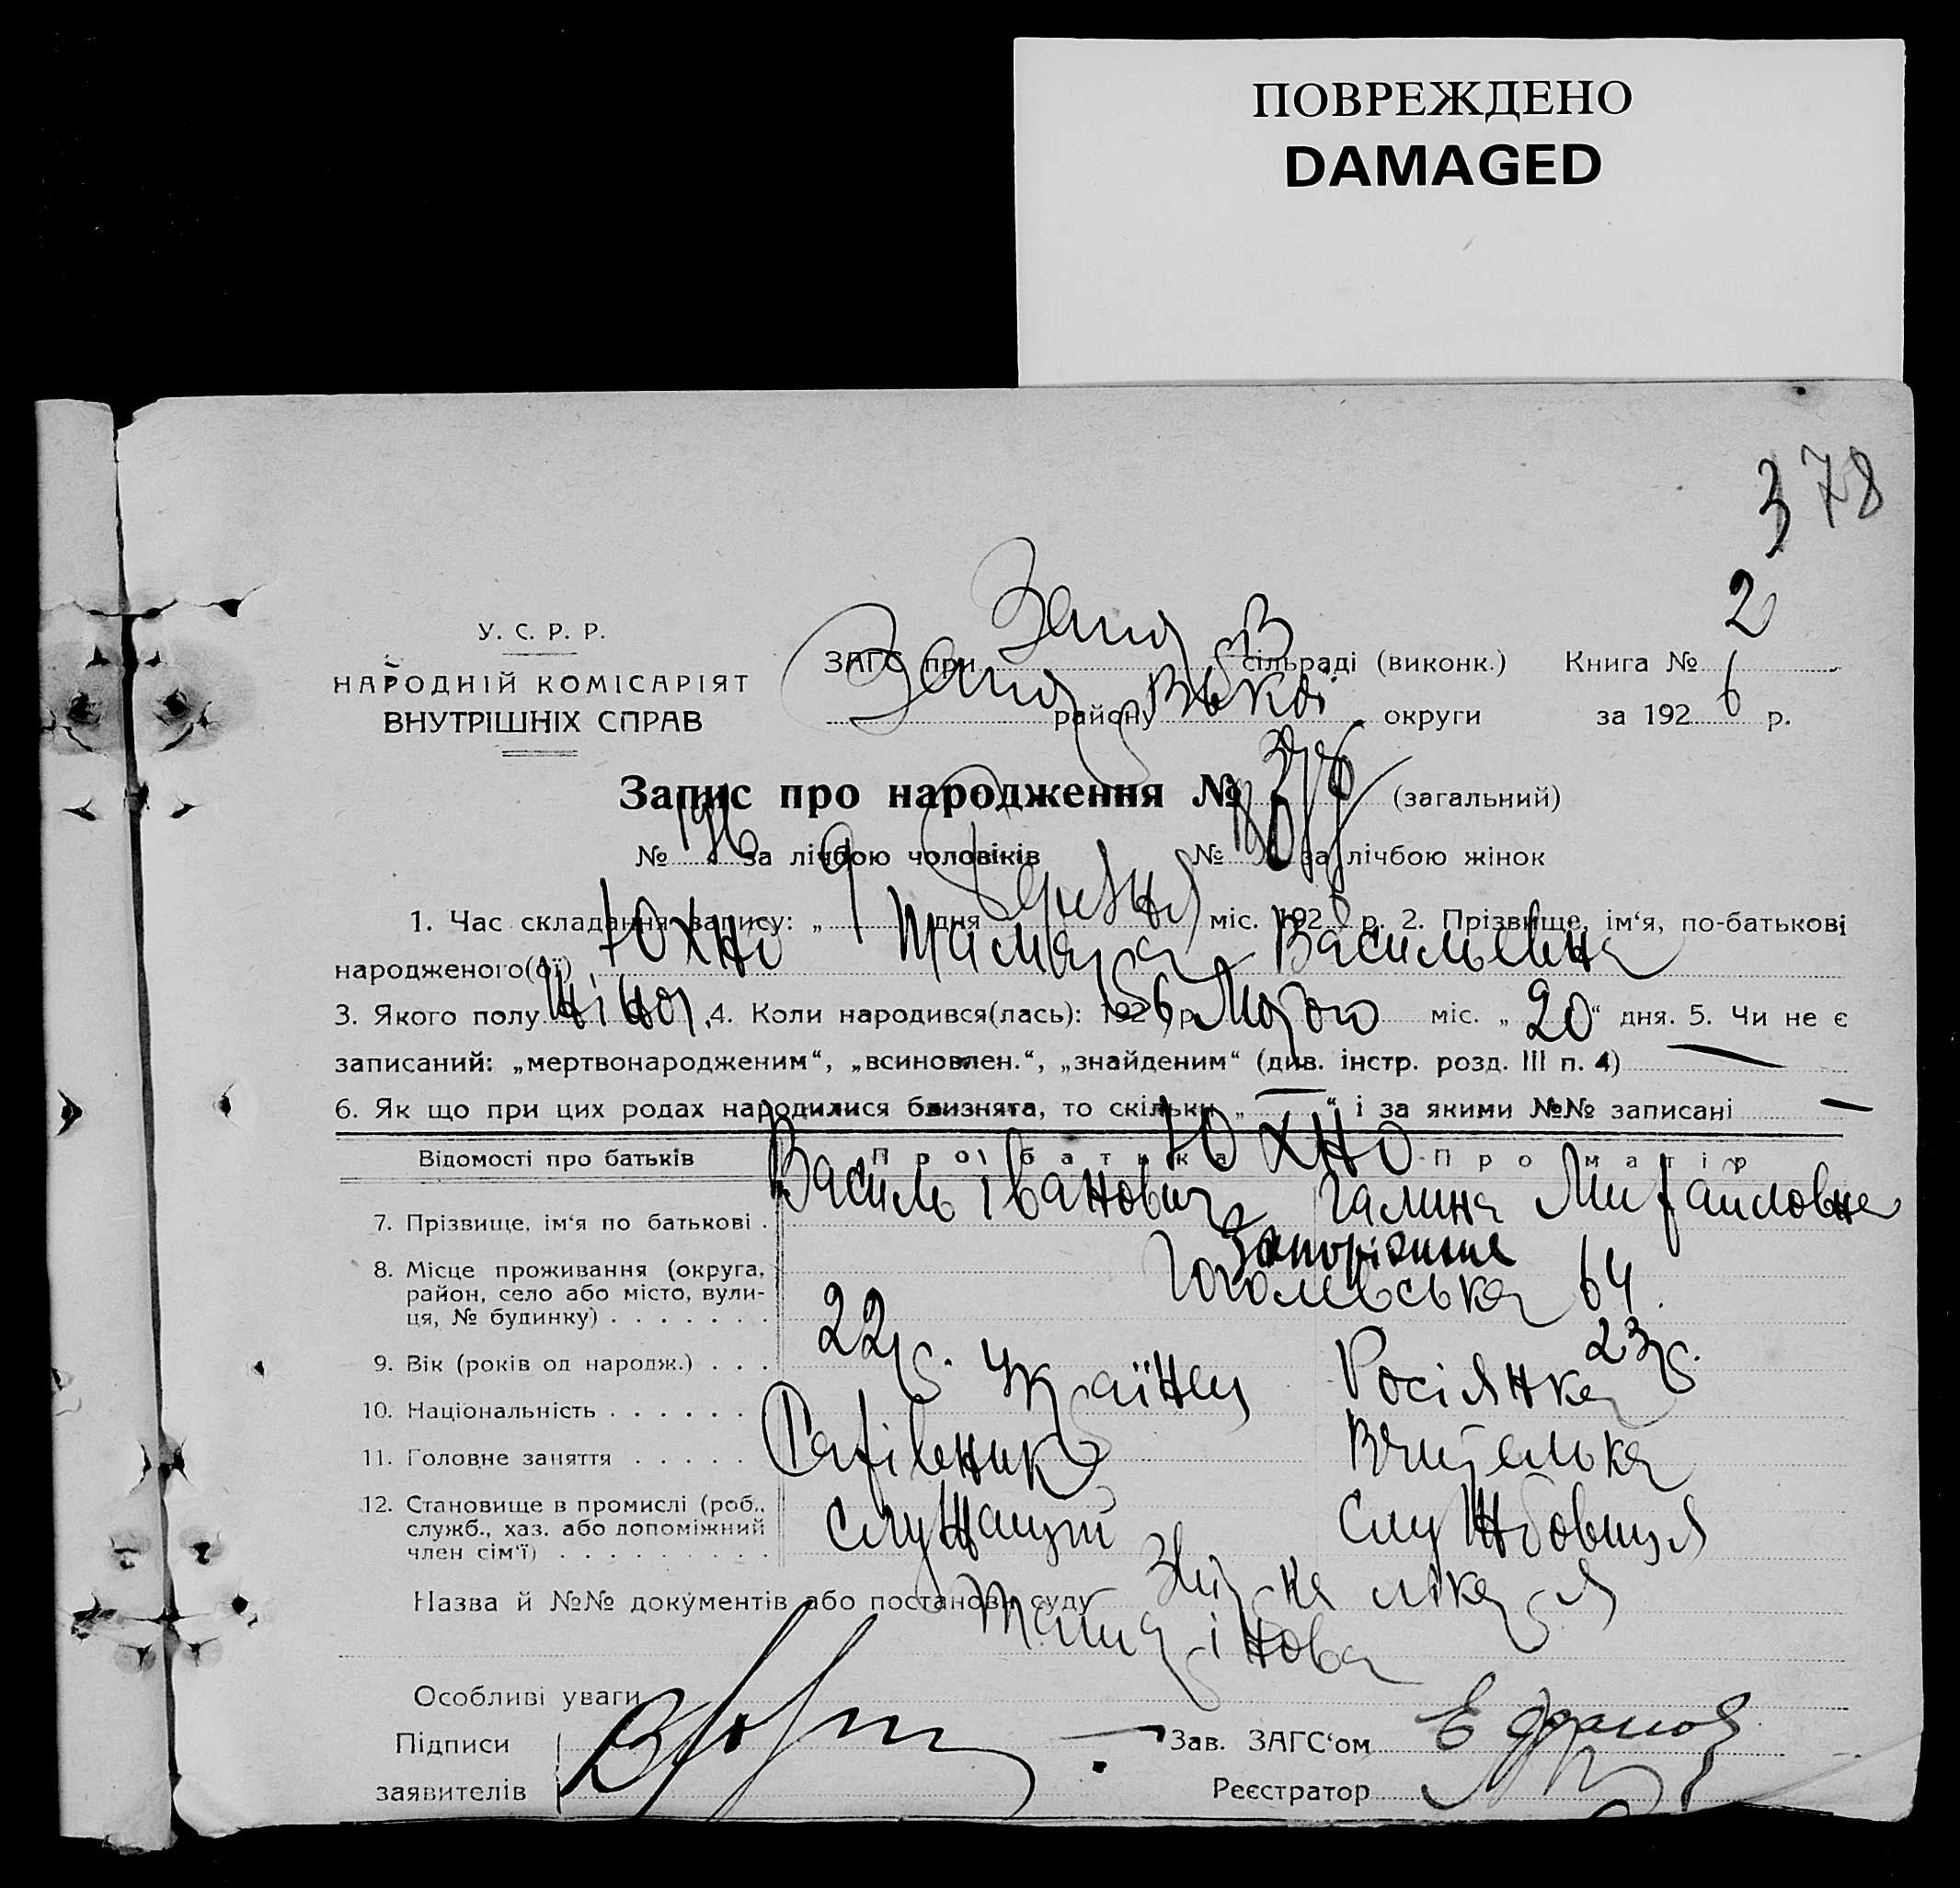 ПОВРЕЖДЕНО
DAMAGED
378
У. С. Р. Р.
НАРОДНІЙ КОМІСАРІЯТ
ВНУТРІШНІХ СПРАВ
ЗАГС при сільраді (виконк.) Книга № 2
району округи за 1926 р.
Запис про народження № 378 (загальний)
№ за лічбою чоловіків № за лічбою жінок
1. Час складання запису: „ 9 дня міс. 192 р. 2. Прізвище, ім‘я, по-батькові
народженого(ої) Юхно Тамара Васильевна
3. Якого полу жіноч. 4. Коли народився(лась): 1926 р. міс. „ 20 “ дня. 5. Чи не є
записаний: „мертвонародженим“, „всиновлен.“, „знайденим“ (див. інстр. розд. III п. 4) —
6. Як що при цих родах народилися близнята, то скільки „ — “ і за якими №№ записані —
Відомості про батьків Про батька Про матір
Юхно
7. Прізвище, ім‘я по батькові . Василь Іванович Галина Михайловна
8. Місце проживання (округа, район, село або місто, вулиця, № будинку) . . . . . . . Запоріжжя
Гоголевська 64.
9. Вік (років од народж.) . . . 22 р. 23 р.
10. Національність . . . . . . Українец Росіянка
11. Головне заняття . . . . . Рахівник Вчителька
12. Становище в промислі (роб., служб., хаз. або допоміжний член сім‘ї) . . . . . . . . . Служащий Службовиця
Назва й №№ документів або постанови суду лікаря
Особливі уваги
Підписи заявителів
Зав. ЗАГС‘ом
Реєстратор